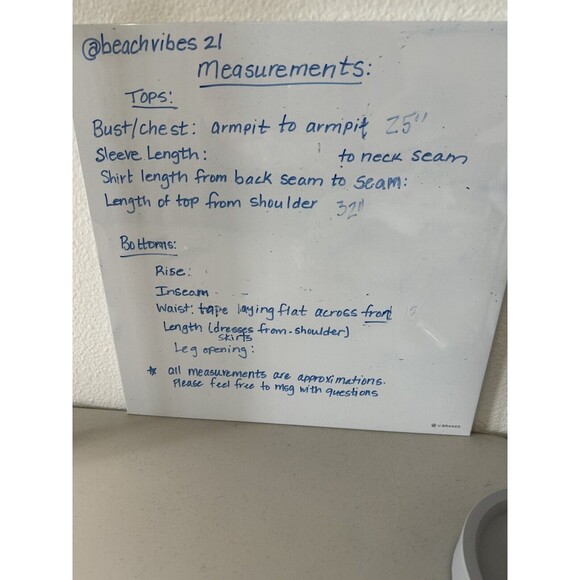 @beachvibes 21
Measurements:
TOPS:
Bust/chest: armpit to armpit 25"
Sleeve Length: to neck seam
Shirt length from back seam to seam:
Length of top from shoulder 32"
Bottoms:
Rise:
Inseam
Waist: tape laying flat across front
Length (dresses from-shoulder)
skirts
Leg opening:
* all measurements are approximations.
Please feel free to msg with questions
U BRANDS